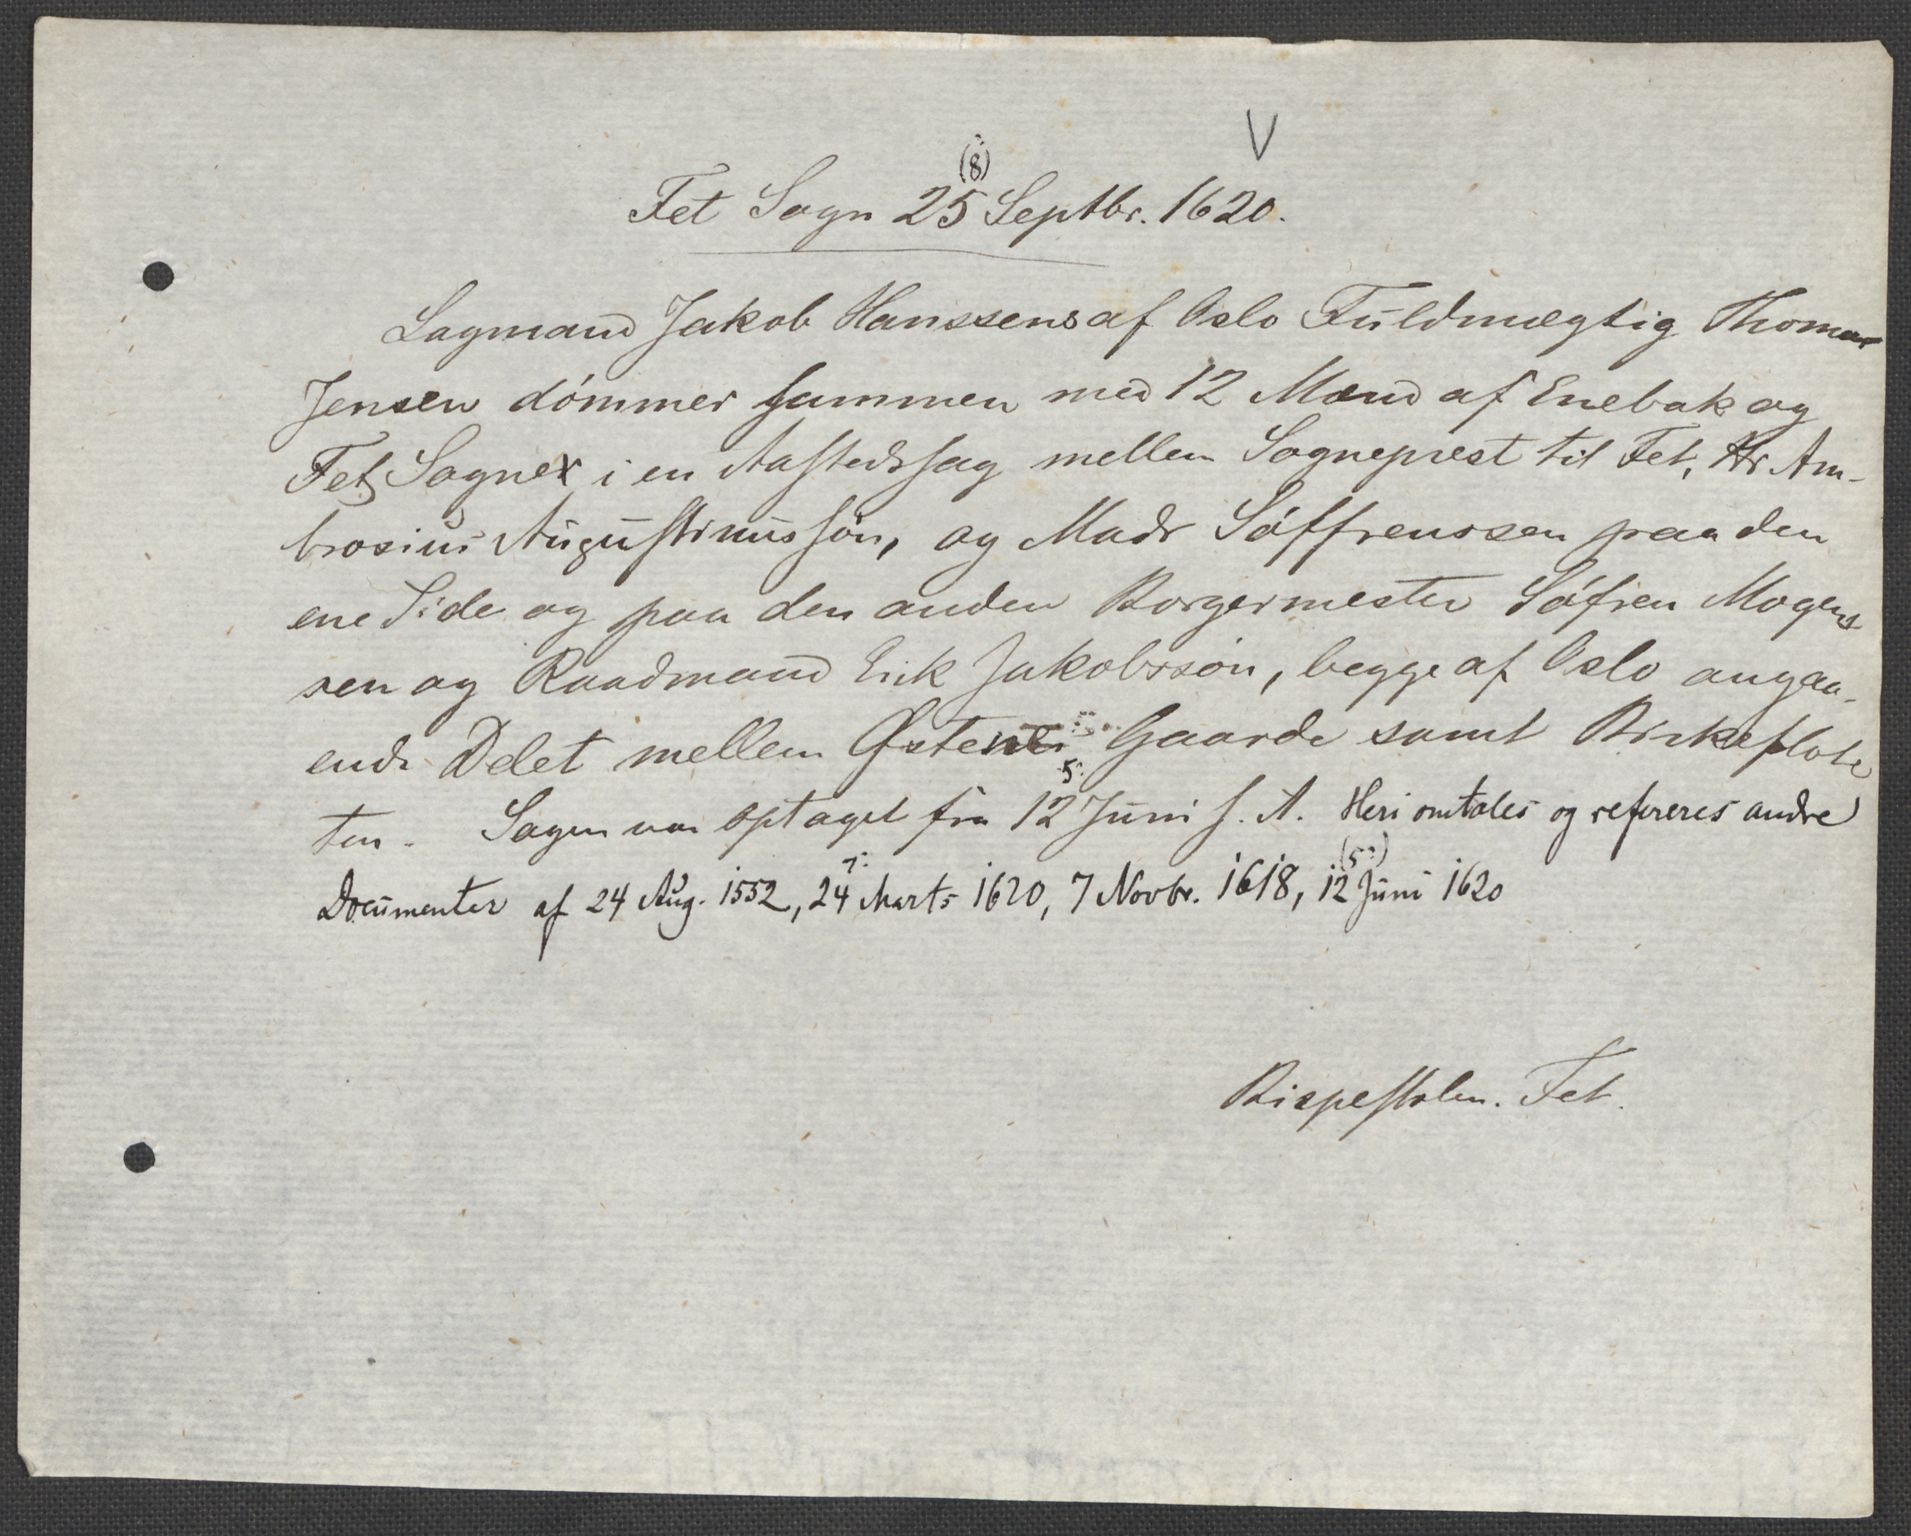 V
(8)
Fet Sogn 25 Septbr. 1620.
Lagmand Jakob Hanssens af Oslo Fuldmægtig Thomas
Jensen dömmer sammen med 12 Mænd af Enebak og
Fets Sogne i en Aastedssag mellem Sogneprest til Fet, Hr Am-
brosius Augustinussön, og Mads Söffrenssen paa den
ene Side og paa den anden Borgermester Söfren Mogens
sen og Raadmand Erik Jakobssön, begge af Oslo angaa-
ende Delet mellem Gaarde samt Birkeflote
ten. Sagen var optaget fra 12 5: Juni s. A. Heri omtales og refereres andre
Documenter af 24 Aug. 1552, 24 7: Marts 1620, 7 Novbr. 1618, 12 (5:) Juni 1620
Bispestolen. Fet.